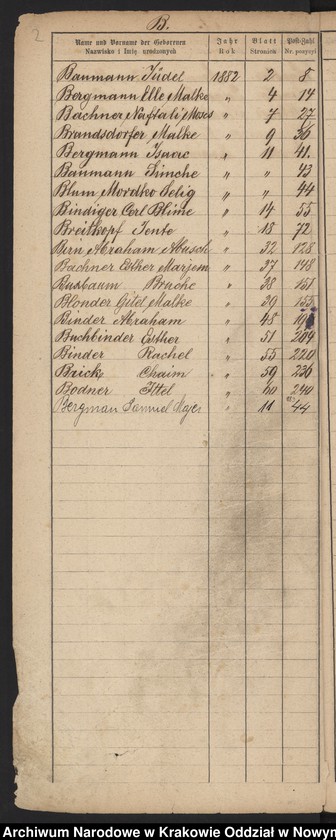 2
B.
Name und Vorname der Geborenen Jahr Blatt Post-Zahl
Nazwisko i Imię urodzonych Rok Stronica Nr. pozycyi
Baumann Jüdel 1882 2 8
Bergmann Elle Malke " 4 14
Bachner Naftali Moses " 7 27
Brandsdorfer Malke " 9 36
Bergmann Isaac " 11 41.
Baumann Simche " " 43
Blum Mordko Selig " " 44
Bindiger Cerl Blime " 14 55
Breitkopf Jente " 18 72
Birn Abraham Abusch " 32 128
Bachner Esther Marjem " 37 148
Busbaum Brache " 38 151
Blonder Gitel Malke " 39 155
Binder Abraham " 48
Buchbinder Esther " 51 204
Binder Rachel " 55 220
Brick Chaim " 59 236
Bodner Ittel " 60 240
Bergman Samuel Majer " 11 44
Archiwum Narodowe w Krakowie Oddział w Nowym